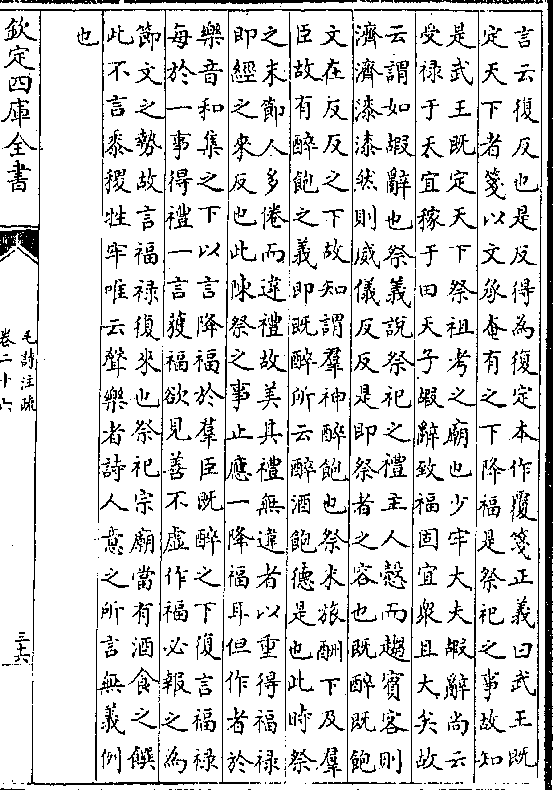 言云復反也是反得為復定本作覆箋正義曰武王既
定天下者箋以文承奄有之下降福是祭祀之事故知
是武王既定天下祭祖考之廟也少牢大夫嘏辭尚云
受禄于天宜稼于田天子嘏辭致福固宜衆且大矣故
云謂如嘏辭也祭義說祭祀之禮主人慤而趨賓客則
濟濟漆漆然則威儀反反是即祭者之容也既醉既飽
文在反反之下故知謂羣神醉飽也祭末旅酬下及羣
臣故有醉飽之義即既醉所云醉酒飽德是也此時祭
之末節人多倦而違禮故美其禮無違者以重得福禄
即經之來反也此陳祭之事止應一降福耳但作者於
樂音和集之下以言降福於羣臣既醉之下復言福禄
每於一事得禮一言獲福欲見善不虛作福必報之為
節文之勢故言福禄復來也祭祀宗廟當有酒食之饌
此不言黍稷牲牢唯云聲樂者詩人意之所言無義例
也
欽定四庫全書
毛詩注疏
卷二十六
三十六